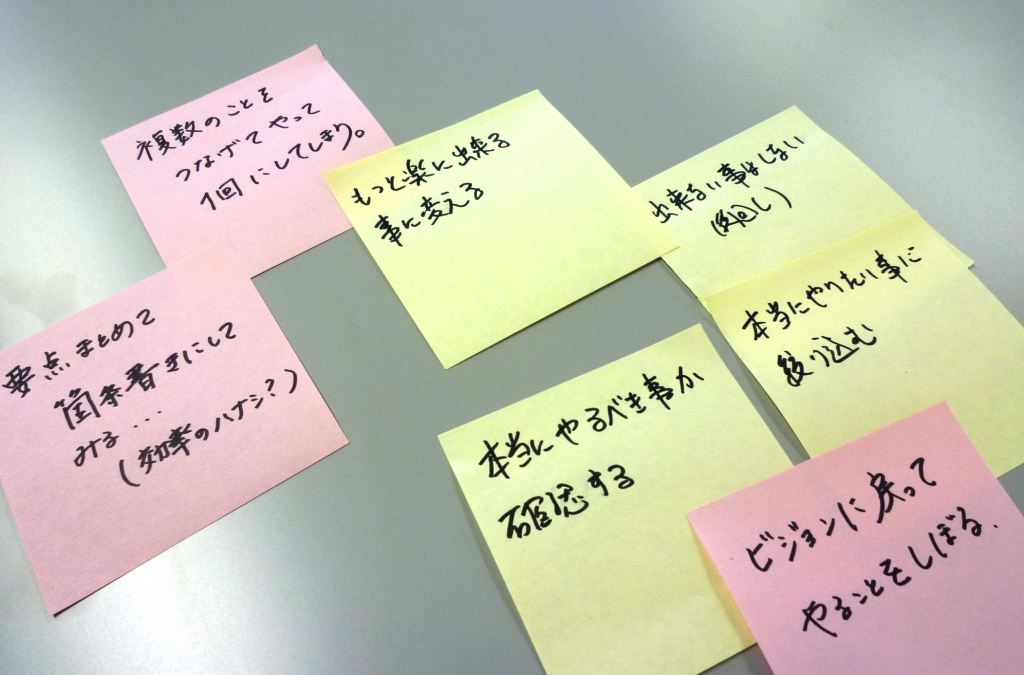 複数のことを
つなげてやって
1回にしてしまう。
もっと楽に出来る
事に変える
出来ない事はしない
(後回し)
本当にやりたい事に
絞り込む
要点まとめて
箇条書きにして
みる...
(効率のハナシ?)
本当にやるべき事か
確認する
ビジョンに戻って
やることをしぼる.